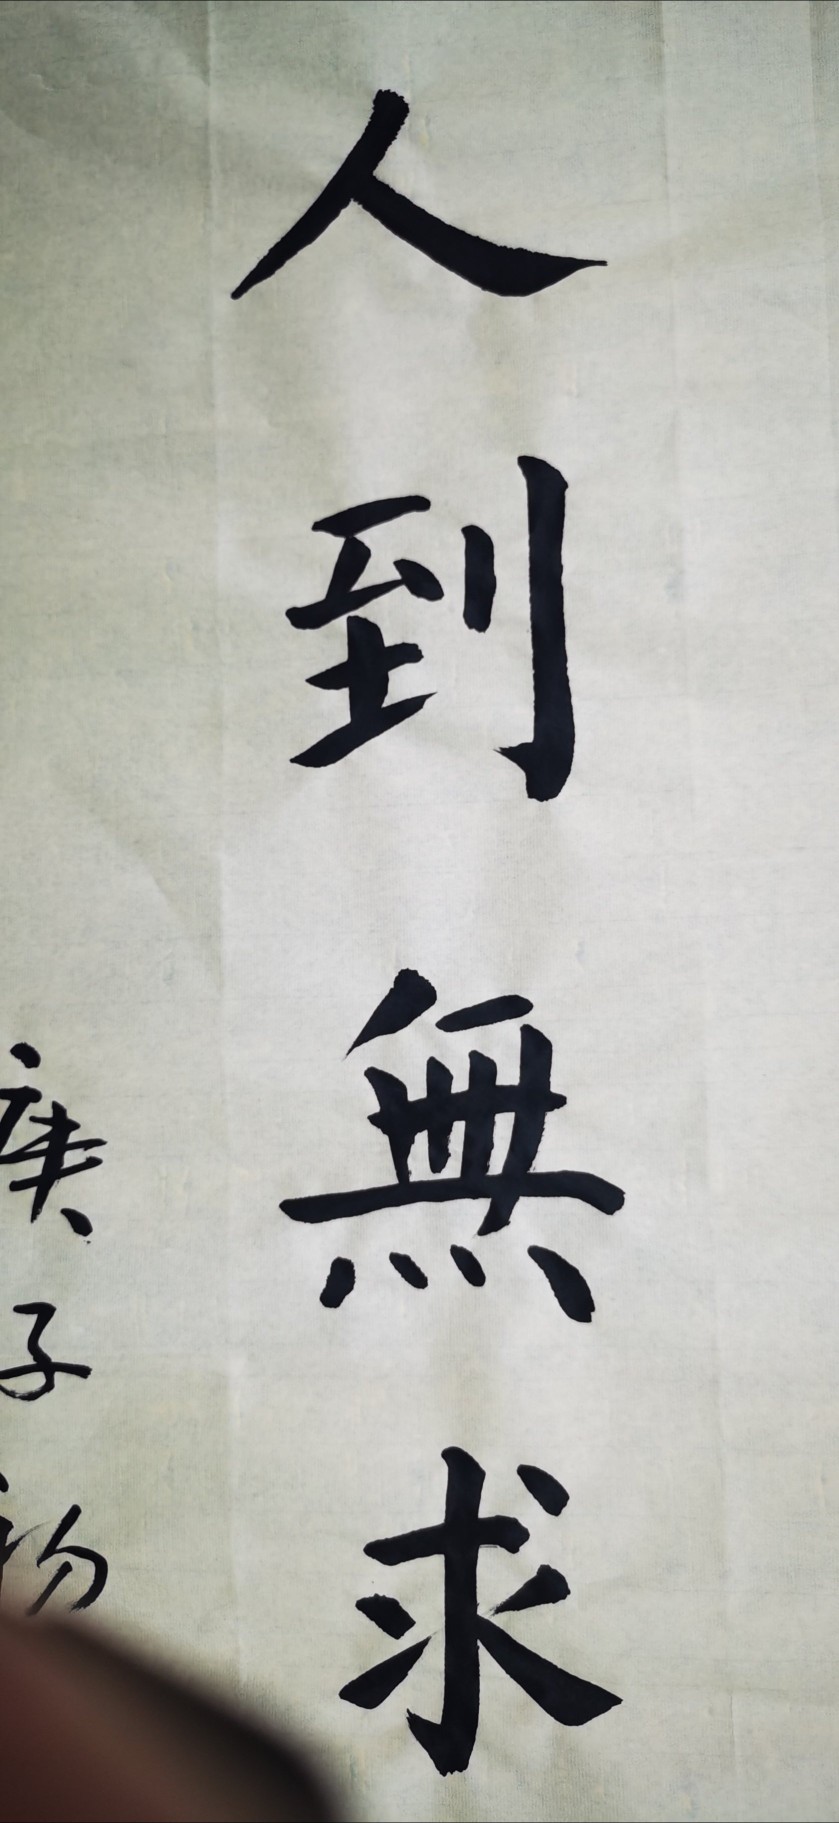 人到無求
庚子初